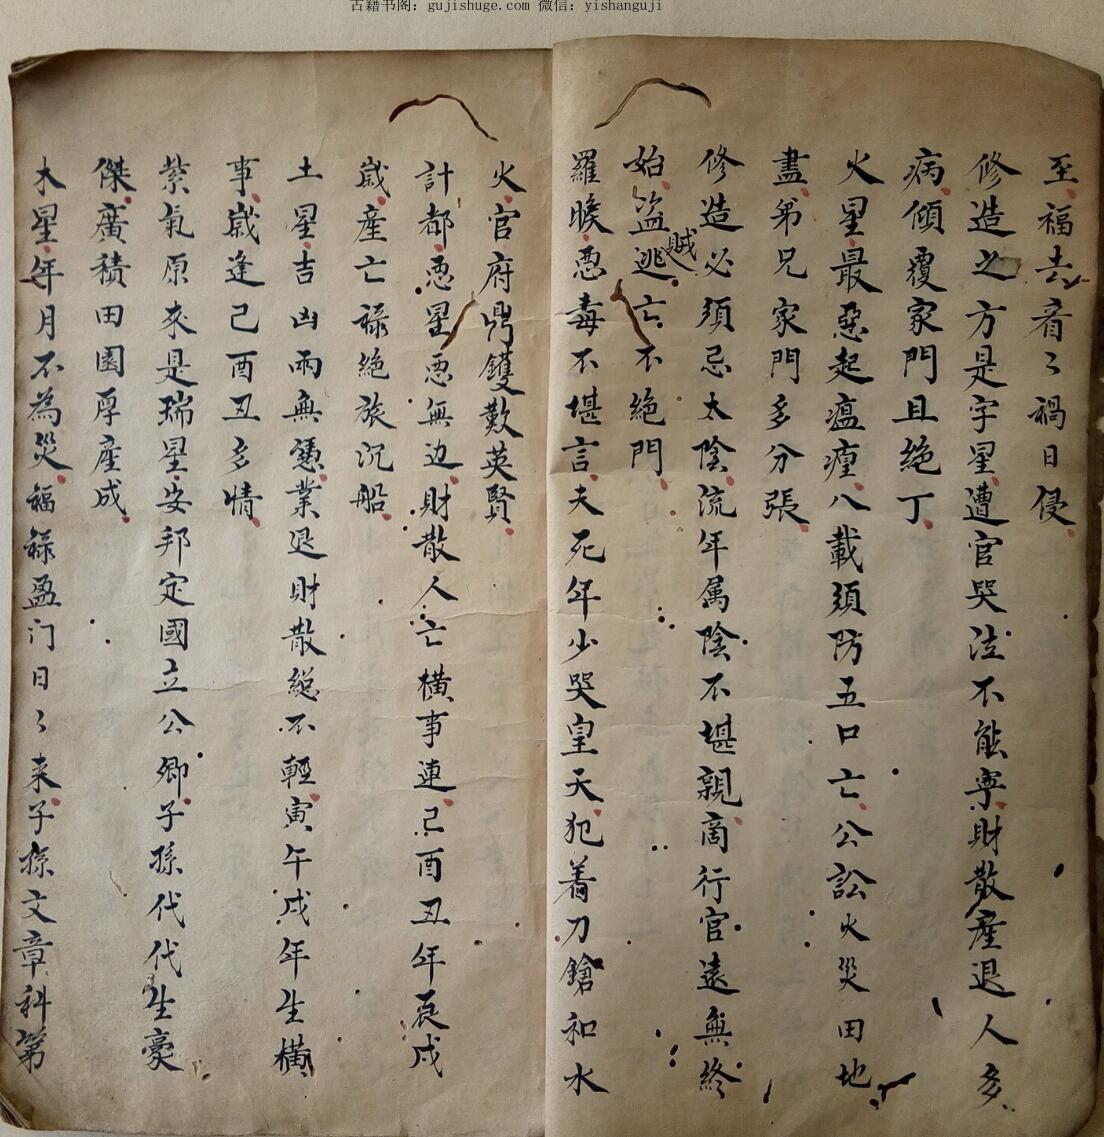 古籍书阁：gujishuge.com 微信：yishanguji
至福去看〻禍日侵
修造之方是孛星遭官哭泣不能寧財散產退人多
病傾覆家門且絶丁
火星最惡起瘟瘽八載須防五口亡公訟火災田地
盡弟兄家門多分張
修造必須忌太陰流年属陰不堪親商行官遠無終
始盜賊逃亡不絶門
羅睺悪毒不堪言夭死年少哭皇天犯着刀鎗和水
火官府鼎鑊歎英賢
計都悪星悪無边財散人亡橫事連己酉丑年辰戍
歲產亡祿絶旅沉船
土星吉凶兩無憑業退財散絕不輕寅午戍年生橫
事歲逢己酉丑多情
紫氣原來是瑞星安邦定國立公卿子孫代代生豪
傑廣積田園厚產成
木星年月不為災福祿盈门日〻来子孫文章科第